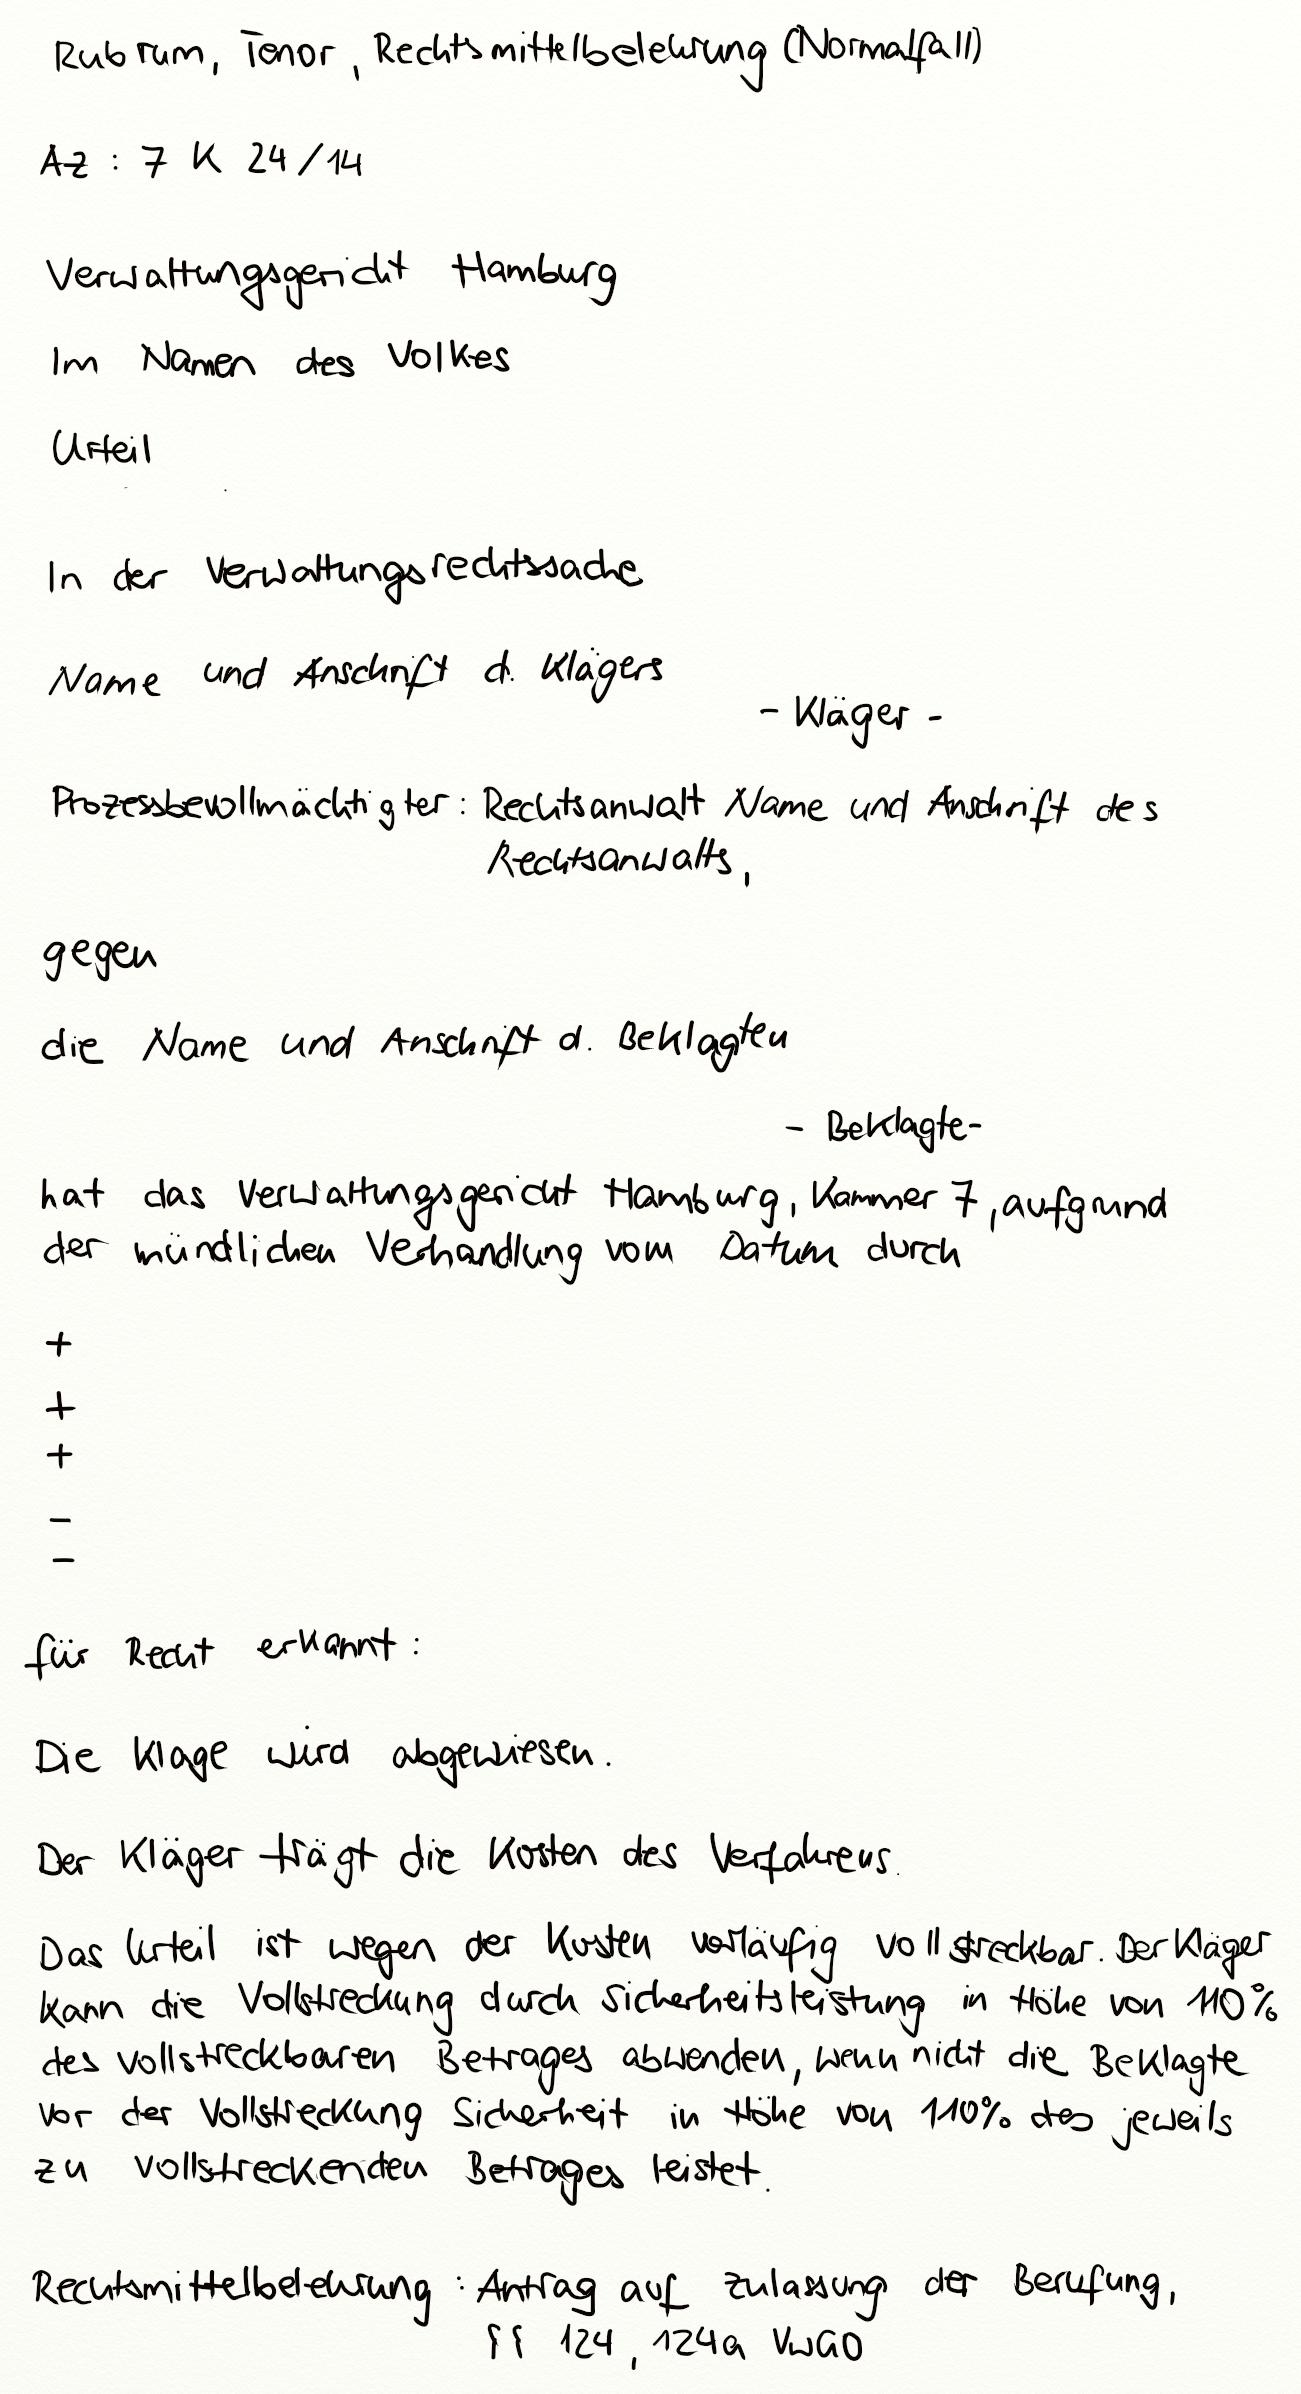 Rubrum, Tenor, Rechtsmittelbelehrung (Normalfall)
Az : 7 K 24/14
Verwaltungsgericht Hamburg
Im Namen des Volkes
Urteil
In der Verwaltungsrechtssache
Name und Anschrift d. Klägers
- Kläger -
Prozessbevollmächtigter: Rechtsanwalt Name und Anschrift des
Rechtsanwalts,
gegen
die Name und Anschrift d. Beklagten
- Beklagte-
hat das Verwaltungsgericht Hamburg, Kammer 7, aufgrund
der mündlichen Verhandlung vom Datum durch
+
+
+
-
-
für Recht erkannt:
Die Klage wird abgewiesen.
Der Kläger trägt die Kosten des Verfahrens.
Das Urteil ist wegen der Kosten vorläufig vollstreckbar. Der Kläger
kann die Vollstreckung durch Sicherheitsleistung in Höhe von 110%
des vollstreckbaren Betrages abwenden, wenn nicht die Beklagte
vor der Vollstreckung Sicherheit in Höhe von 110% des jeweils
zu vollstreckenden Betrages leistet.
Rechtsmittelbelehrung : Antrag auf Zulassung der Berufung,
§§ 124, 124a VwGO